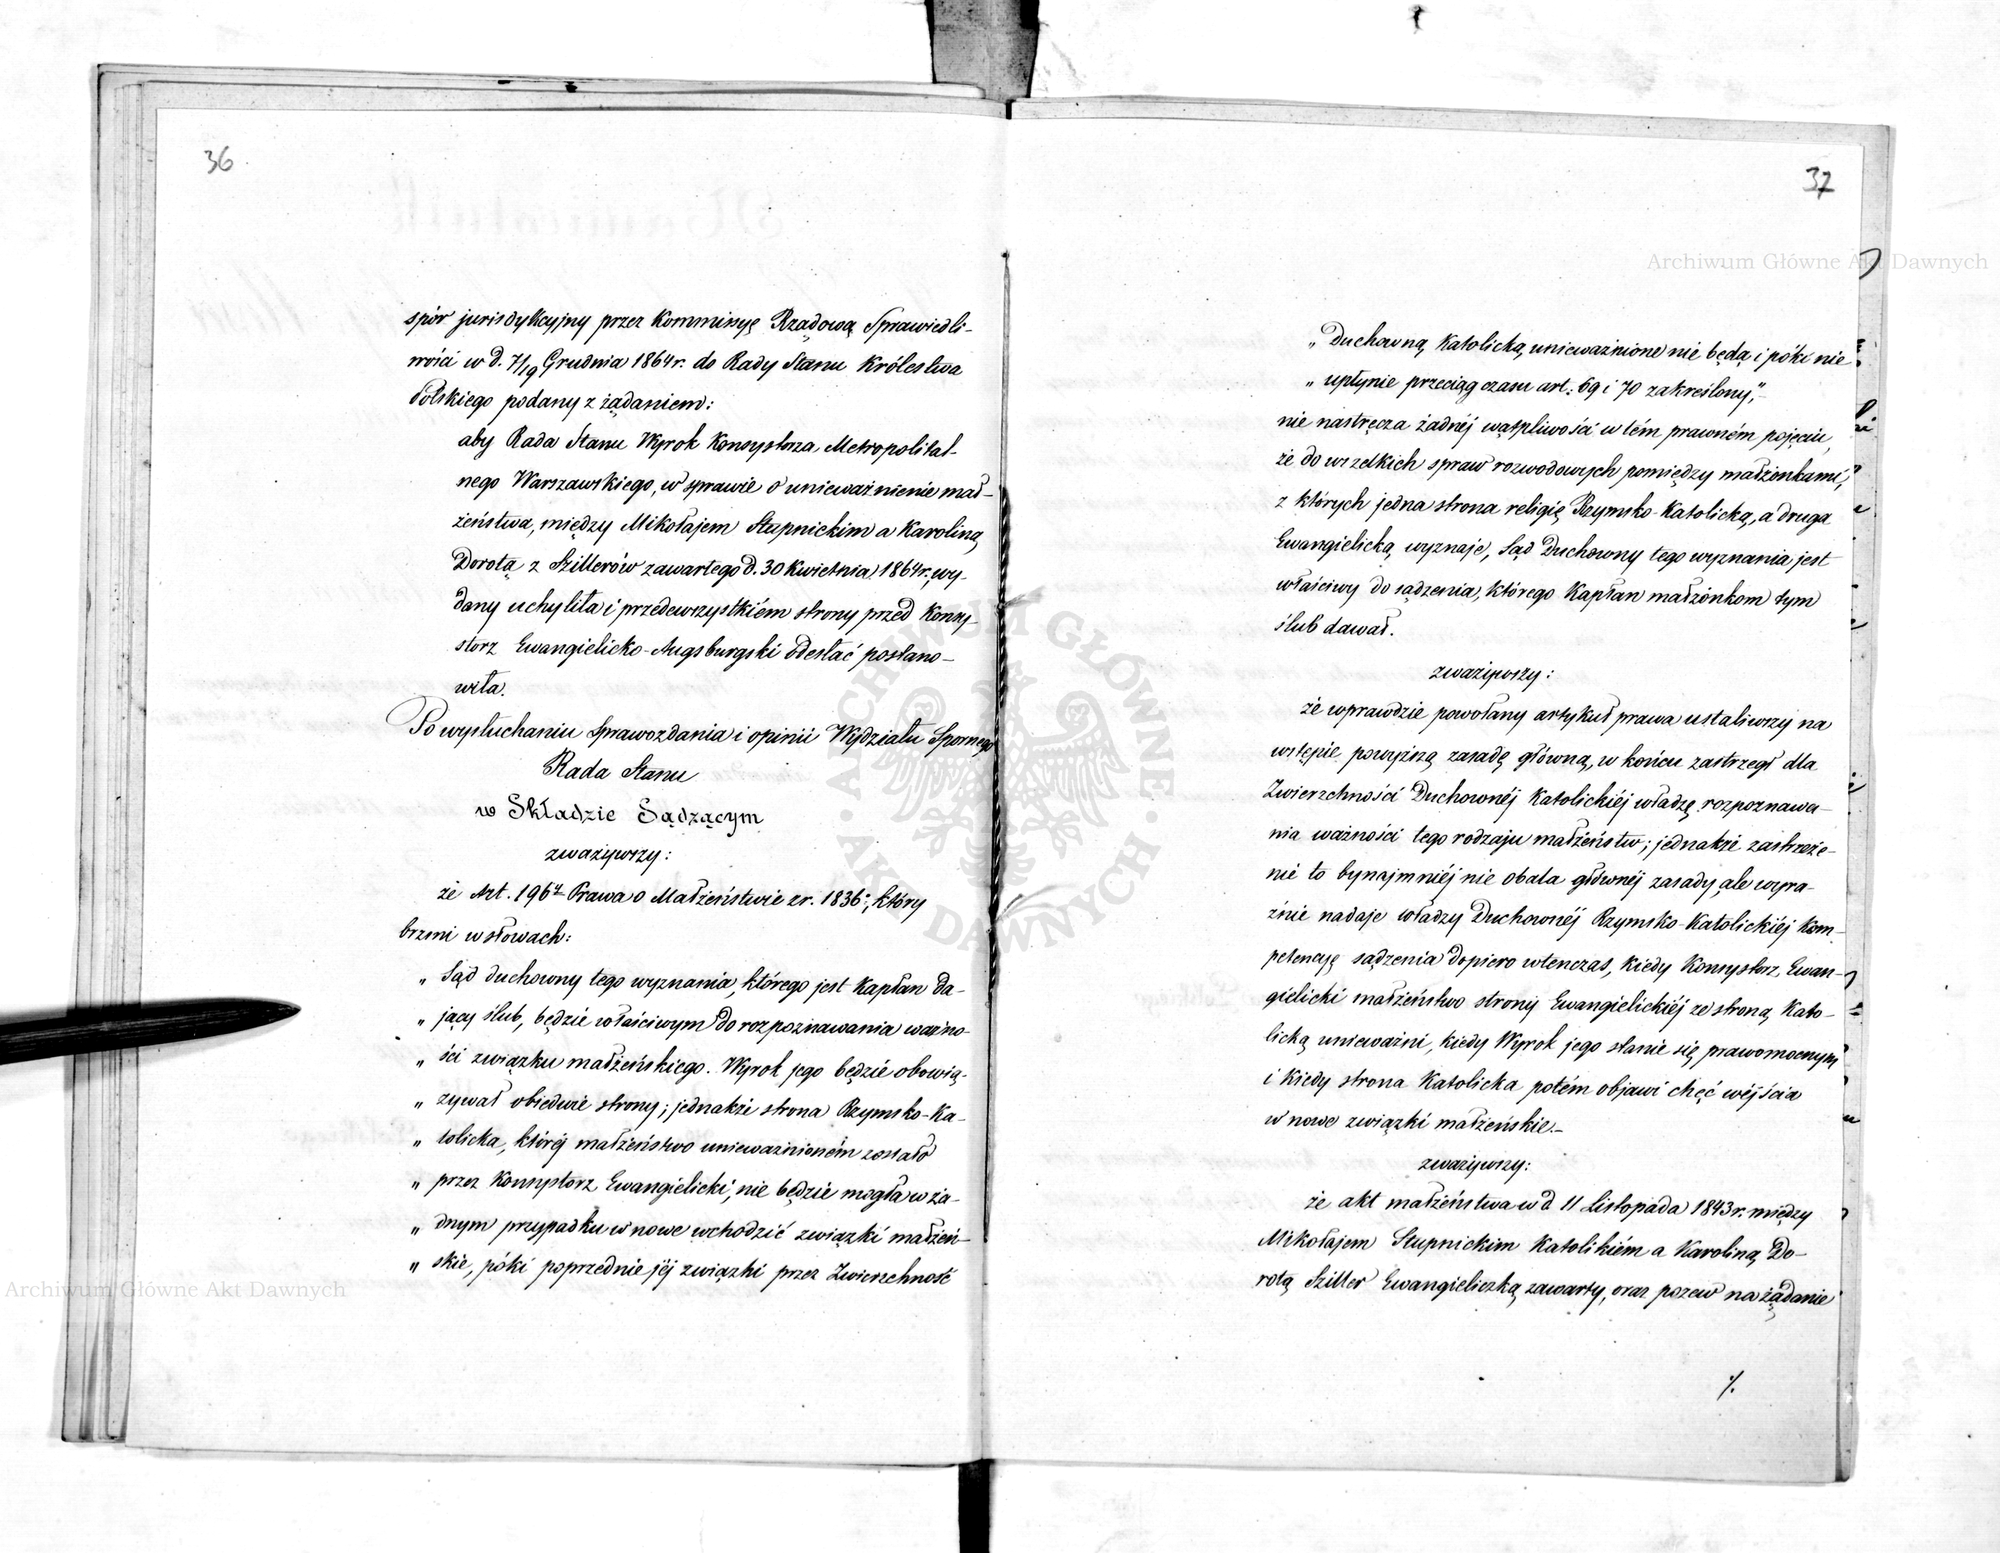 36
spór jurisdykcyjny przez Kommissyę Rządową Sprawiedli-
wości w d. 7/19 Grudnia 1864 r. do Rady Stanu Królestwa
Polskiego podany z żądaniem:
aby Rada Stanu Wyrok Konsystorza Metropolital-
nego Warszawskiego, w sprawie o unieważnienie mał-
żeństwa, między Mikołajem Stupnickim a Karoliną
Dorotą z Szillerów zawartego d. 30 Kwietnia 1864 r. wy-
dany uchyliła i przedewszystkiém strony przed Konsy-
storz Ewangielicko-Augsburgski odesłać postano-
wiła.
Po wysłuchaniu Sprawozdania i opinii Wydziału Spornego
Rada Stanu
w Składzie Sądzącym
zważywszy:
że Art. 196ty Prawa o Małżeństwie z r. 1836, który
brzmi w słowach:
„ Sąd duchowny tego wyznania, którego jest Kapłan da-
„ jący ślub, będzie właściwym do rozpoznawania ważno-
„ ści związku małżeńskiego. Wyrok jego będzie obowią-
„ zywał obiedwie strony; jednakże strona Rzymsko-Ka-
„ tolicka, któréj małżeństwo unieważnioném zostało
„ przez Konsystorz Ewangielicki, nie będzie mogła w ża-
„ dnym przypadku w nowe wchodzić związki małżeń-
„ skie, póki poprzednie jéj związki przez Zwierzchność
37
„ Duchowną Katolicką unieważnione nie będą i póki nie
„ upłynie przeciąg czasu art: 69 i 70 zakreślony",-
nie nastręcza żadnéj wątpliwości w tém prawném pojęciu,
że do wszelkich spraw rozwodowych pomiędzy małżonkami,
z których jedna strona religię Rzymsko-Katolicką, a druga
Ewangielicką wyznaje, Sąd Duchowny tego wyznania jest
właściwy do sądzenia, którego Kapłan małżonkom tym
ślub dawał.
zważywszy:
że wprawdzie powołany artykuł prawa ustaliwszy na
wstępie powyższą zasadę główną, w końcu zastrzegł dla
Zwierzchności Duchownéj Katolickiéj władzę rozpoznawa-
nia ważności tego rodzaju małżeństw; jednakże zastrzeże-
nie to bynajmniéj nie obala głównéj zasady, ale wyra-
źnie nadaje władzy Duchownéj Rzymsko-Katolickiéj Kom-
petencyę sądzenia dopiero wtenczas, kiedy Konsystorz Ewan-
gielicki małżeństwo strony Ewangielickiéj ze stroną Kato-
licką unieważni, kiedy Wyrok jego stanie się prawomocnym
i kiedy strona Katolicka potém objawi chęć wéjścia
w nowe związki małżeńskie.-
zważywszy:
że akt małżeństwa w d. 11 Listopada 1843 r. między
Mikołajem Stupnickim Katolikiém a Karoliną Do-
rotą Sziller Ewangieliczką zawarty, oraz pozew na żądanie
./.
Archiwum Główne Akt Dawnych
Archiwum Główne Akt Dawnych
ARCHIWUM GŁÓWNE
AKT DAWNYCH